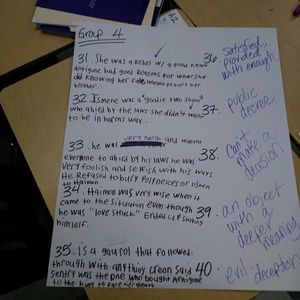 Group 4
31. She was a Rebel w/ a good heart
Antigone had good reasons for what she
did knowing her fate was to bury her
brother.
32. Ismene was a "goodie two shoes"
who abided by the laws she didn't want
to be in harms way.
33. he was very harsh and wanted
everyone to abied by his laws he was
very foolish and selfish with his ways
He Refused to bury Polyneices or listen
to Haimon
34. Haimon was very wise when it
came to the situation even though
he was "love struck" Ended up
himself.
35. is a guy that followed
through with anything Creon said
sentry was the one who bought Antigone
to the king to face her death
36. Satisfied,
provided
with enough
37. Public
decree
38. Can't
make a
decision
39. an object
with a
deeper
meaning
40. evil, deception